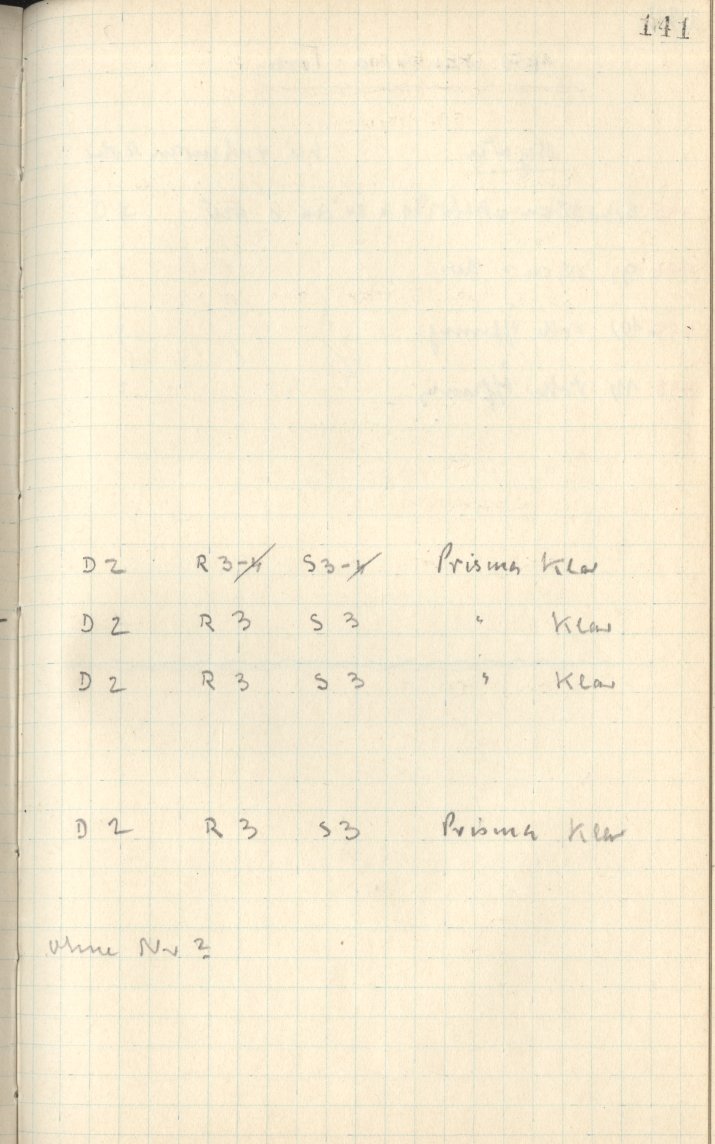 141
D 2 R 3-4 S 3-4 Prisma Klar
D 2 R 3 S 3 " Klar
D 2 R 3 S 3 " Klar
D 2 R 3 S 3 Prisma Klar
ohne Nr 2